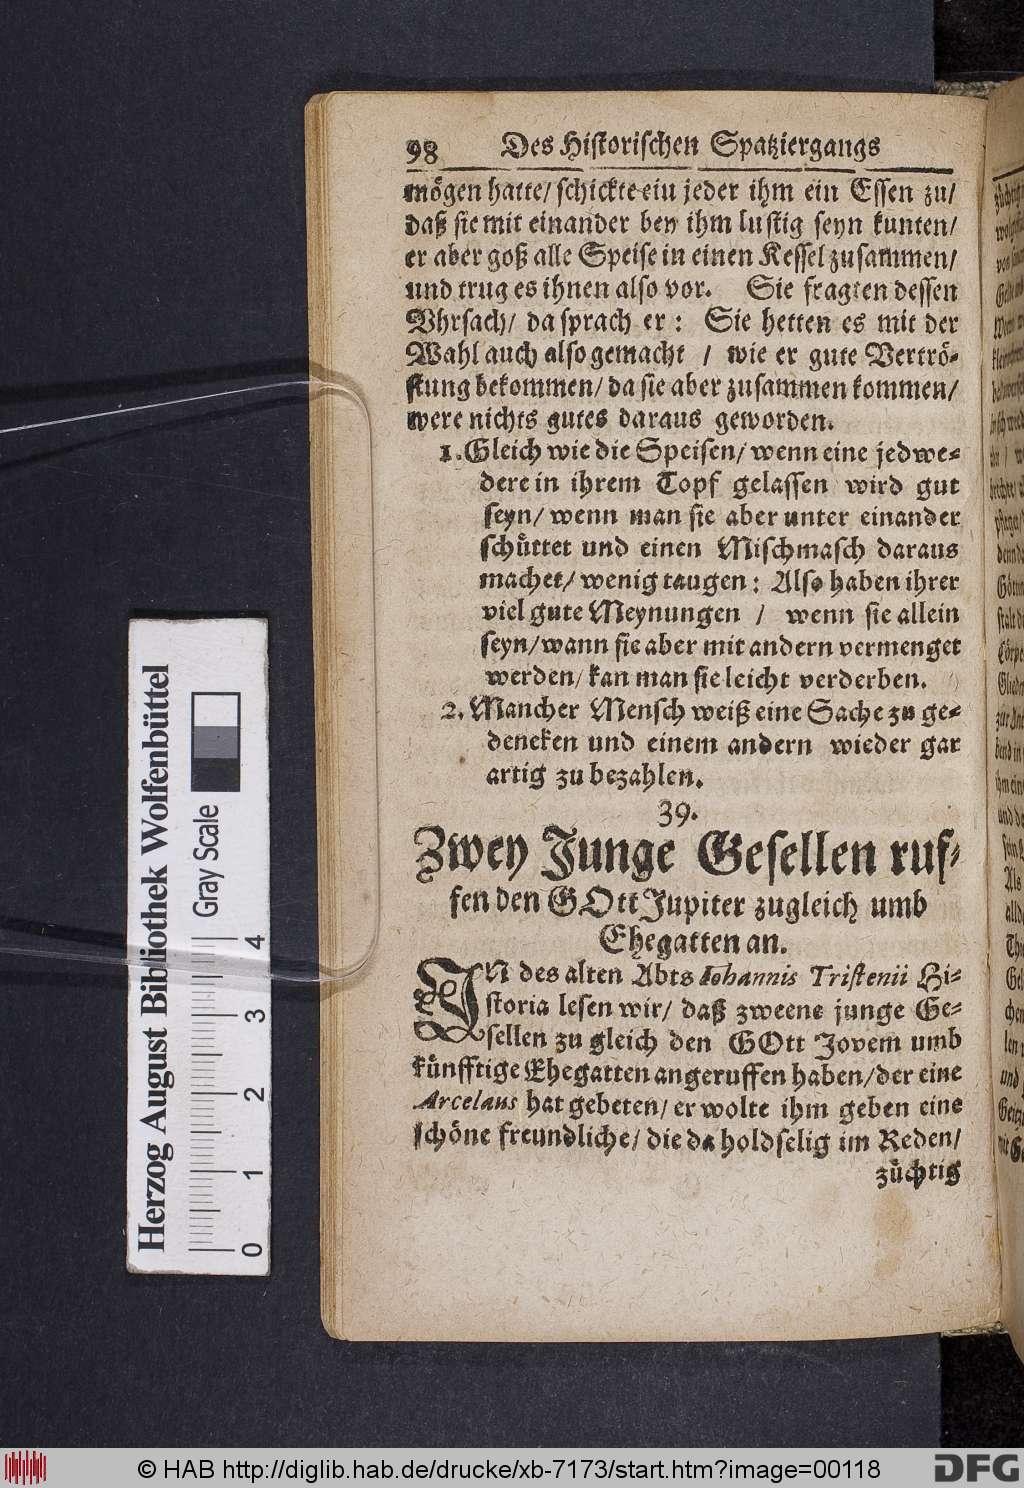 98 Des Historischen Spatziergangs
mögen hatte/ schickte ein jeder ihm ein Essen zu/
daß sie mit einander bey ihm lustig seyn kunten/
er aber goß alle Speise in einen Kessel zusammen/
und trug es ihnen also vor. Sie fragten dessen
Vhrsach/ da sprach er: Sie hetten es mit der
Wahl auch also gemacht / wie er gute Vertrö-
stung bekommen/ da sie aber zusammen kommen/
were nichts gutes daraus geworden.
1. Gleich wie die Speisen/ wenn eine jedwe-
dere in ihrem Topf gelassen wird gut
seyn/ wenn man sie aber unter einander
schüttet und einen Mischmasch daraus
machet/ wenig taugen: Also haben ihrer
viel gute Meynungen / wenn sie allein
seyn/ wann sie aber mit andern vermenget
werden/ kan man sie leicht verderben.
2. Mancher Mensch weiß eine Sache zu ge-
dencken und einem andern wieder gar
artig zu bezahlen.
39.
Zwey Junge Gesellen ruf-
fen den GOtt Jupiter zugleich umb
Ehegatten an.
IN des alten Abts Iohannis Tristenii Hi-
storia lesen wir/ daß zweene junge Ge-
sellen zu gleich den GOtt Jovem umb
künfftige Ehegatten angeruffen haben/ der eine
Arcelaus hat gebeten/ er wolte ihm geben eine
schöne freundliche/ die da holdselig im Reden/
züchtig
Herzog August Bibliothek Wolfenbüttel
Gray Scale
0 1 2 3 4
© HAB http://diglib.hab.de/drucke/xb-7173/start.htm?image=00118
DFG